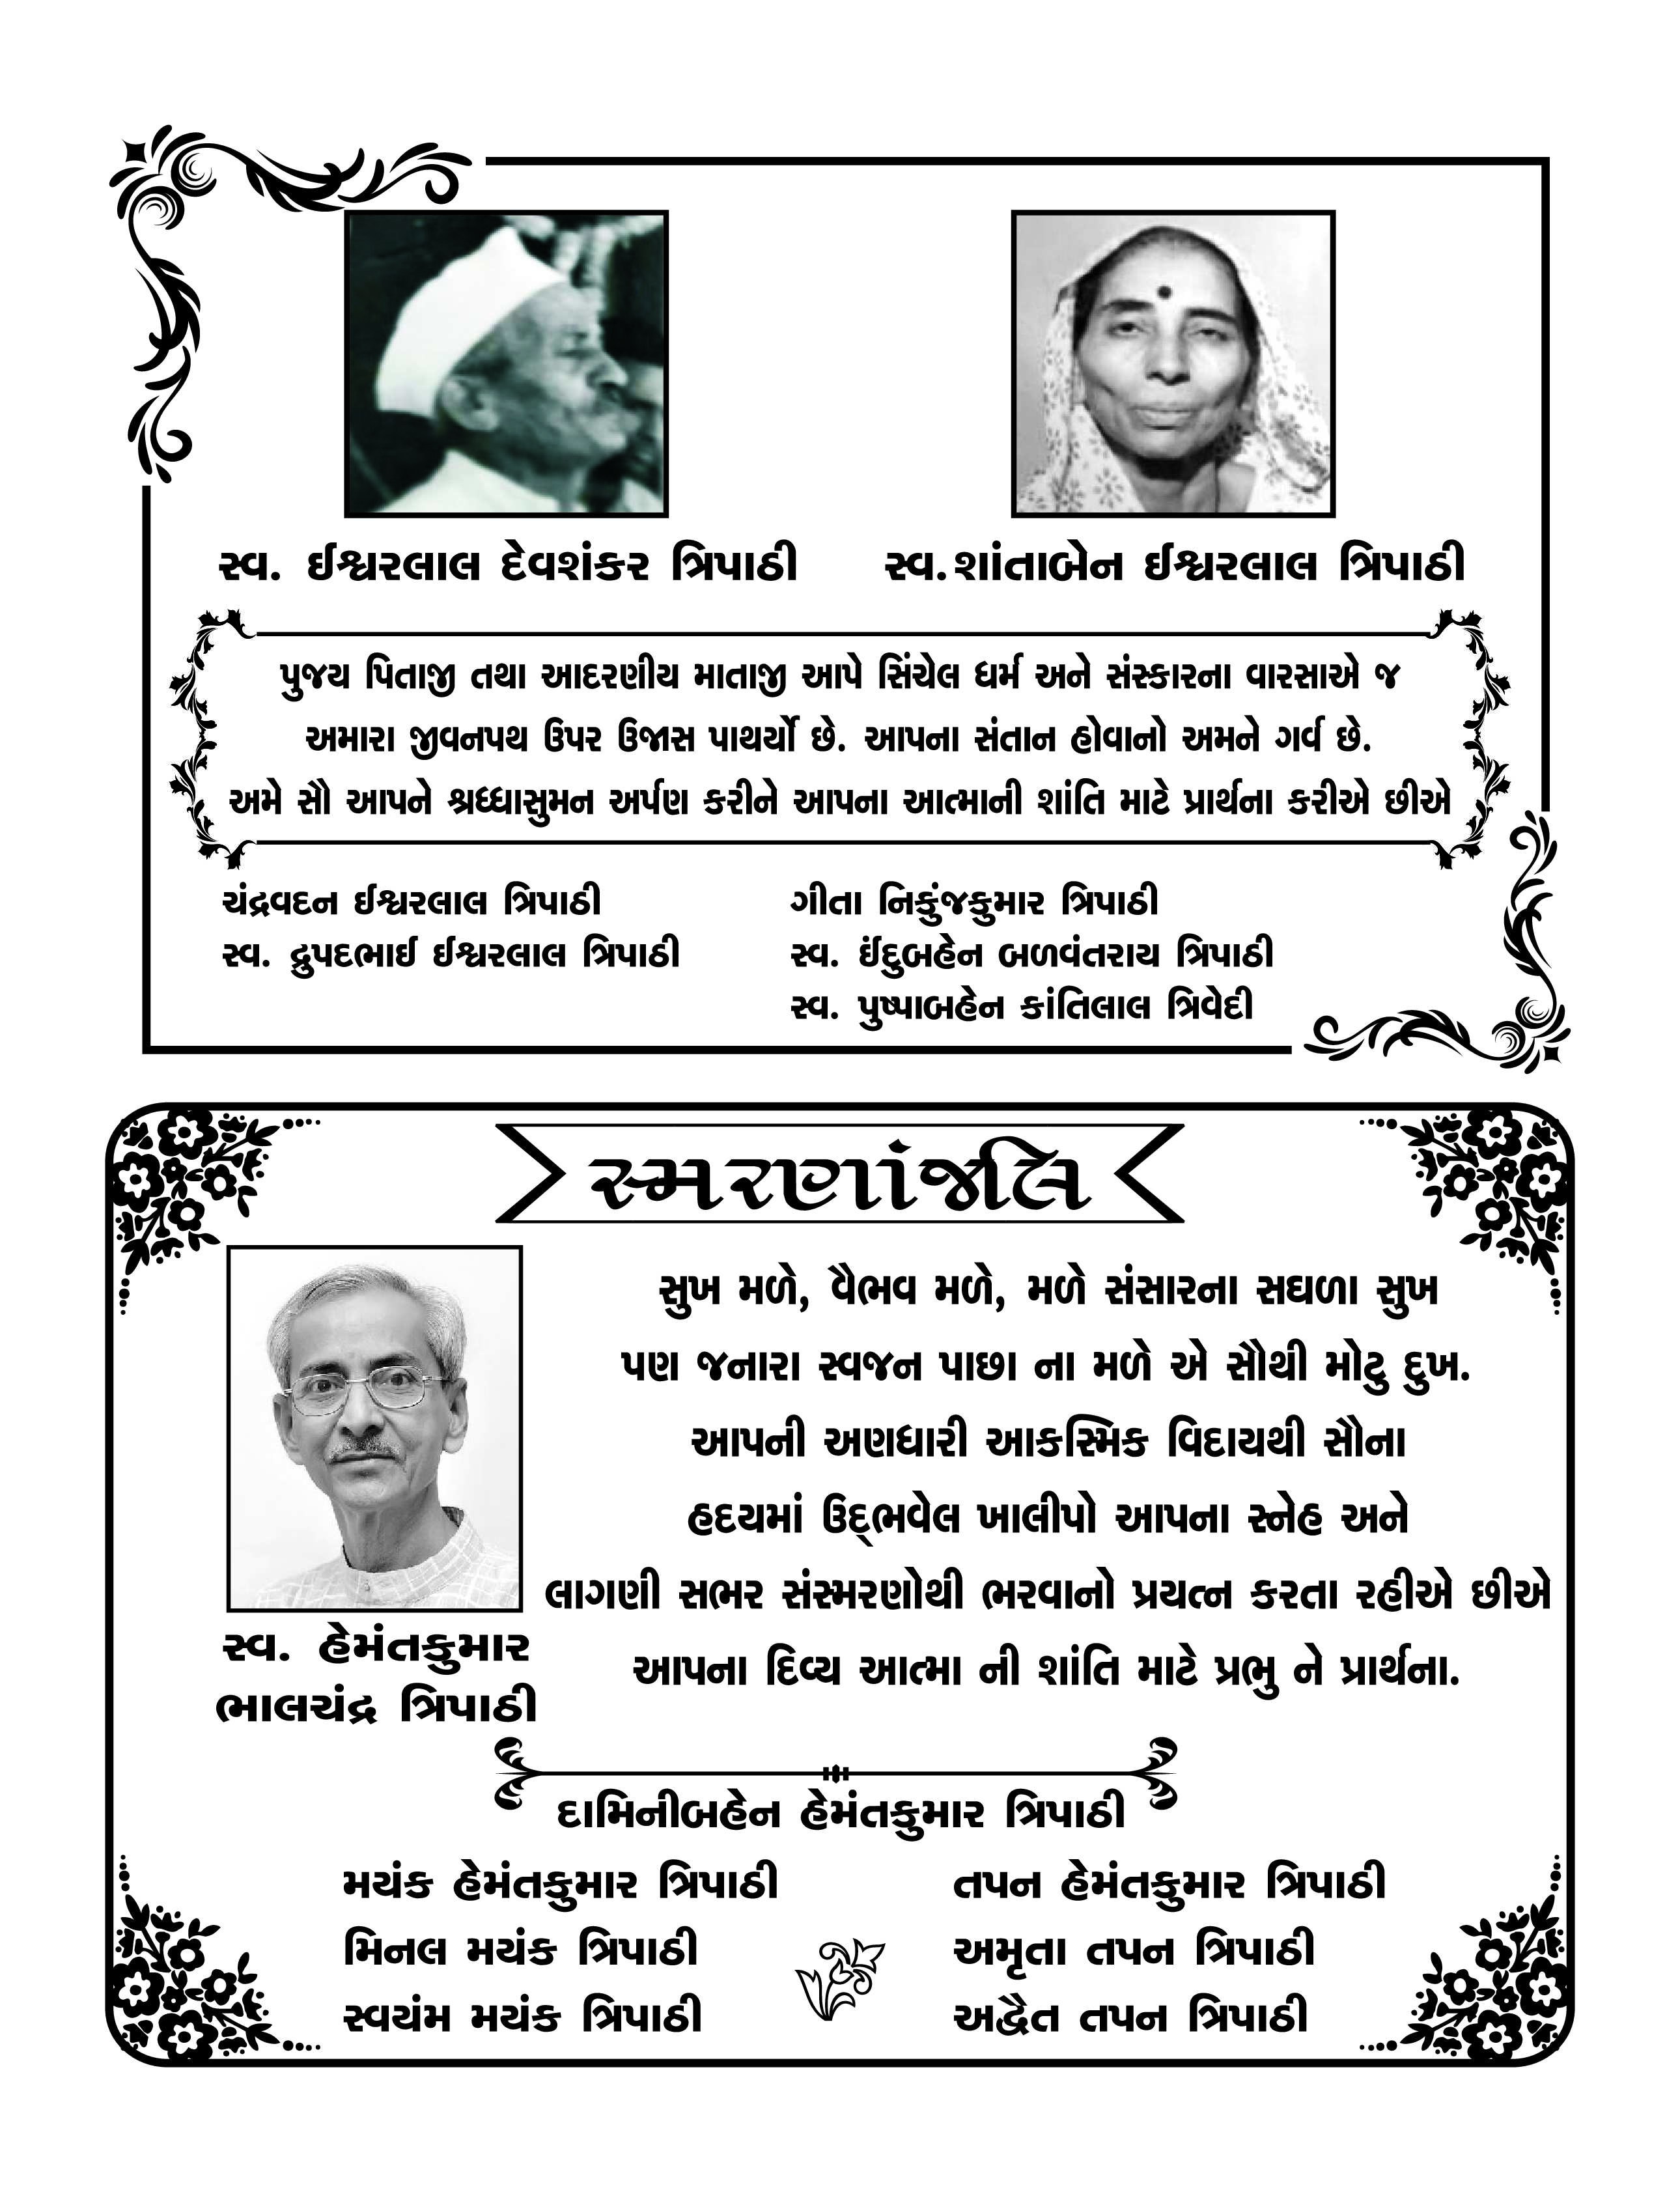 સ્વ. ઈશ્વરલાલ દેવશંકર ત્રિપાઠી
સ્વ. શાંતાબેન ઈશ્વરલાલ ત્રિપાઠી
પુજય પિતાજી તથા આદરણીય માતાજી આપે સિંચેલ ધર્મ અને સંસ્કારના વારસાએ જ
અમારા જીવનપથ ઉપર ઉજાસ પાથર્યો છે. આપના સંતાન હોવાનો અમને ગર્વ છે.
અમે સૌ આપને શ્રધ્ધાસુમન અર્પણ કરીને આપના આત્માની શાંતિ માટે પ્રાર્થના કરીએ છીએ
ચંદ્રવદન ઈશ્વરલાલ ત્રિપાઠી
સ્વ. દ્રુપદભાઈ ઈશ્વરલાલ ત્રિપાઠી
ગીતા નિકુંજકુમાર ત્રિપાઠી
સ્વ. ઈંદુબહેન બળવંતરાય ત્રિપાઠી
સ્વ. પુષ્પાબહેન કાંતિલાલ ત્રિવેદી
સ્મરણાંજલિ
સુખ મળે, વૈભવ મળે, મળે સંસારના સઘળા સુખ
પણ જનારા સ્વજન પાછા ના મળે એ સૌથી મોટુ દુખ.
આપની અણધારી આકસ્મિક વિદાયથી સૌના
હદયમાં ઉદ્‌ભવેલ ખાલીપો આપના સ્નેહ અને
લાગણી સભર સંસ્મરણોથી ભરવાનો પ્રયત્ન કરતા રહીએ છીએ
આપના દિવ્ય આત્મા ની શાંતિ માટે પ્રભુ ને પ્રાર્થના.
સ્વ. હેમંતકુમાર
ભાલચંદ્ર ત્રિપાઠી
દામિનીબહેન હેમંતકુમાર ત્રિપાઠી
મયંક હેમંતકુમાર ત્રિપાઠી
મિનલ મયંક ત્રિપાઠી
સ્વયંમ મયંક ત્રિપાઠી
તપન હેમંતકુમાર ત્રિપાઠી
અમૃતા તપન ત્રિપાઠી
અદ્વૈત તપન ત્રિપાઠી